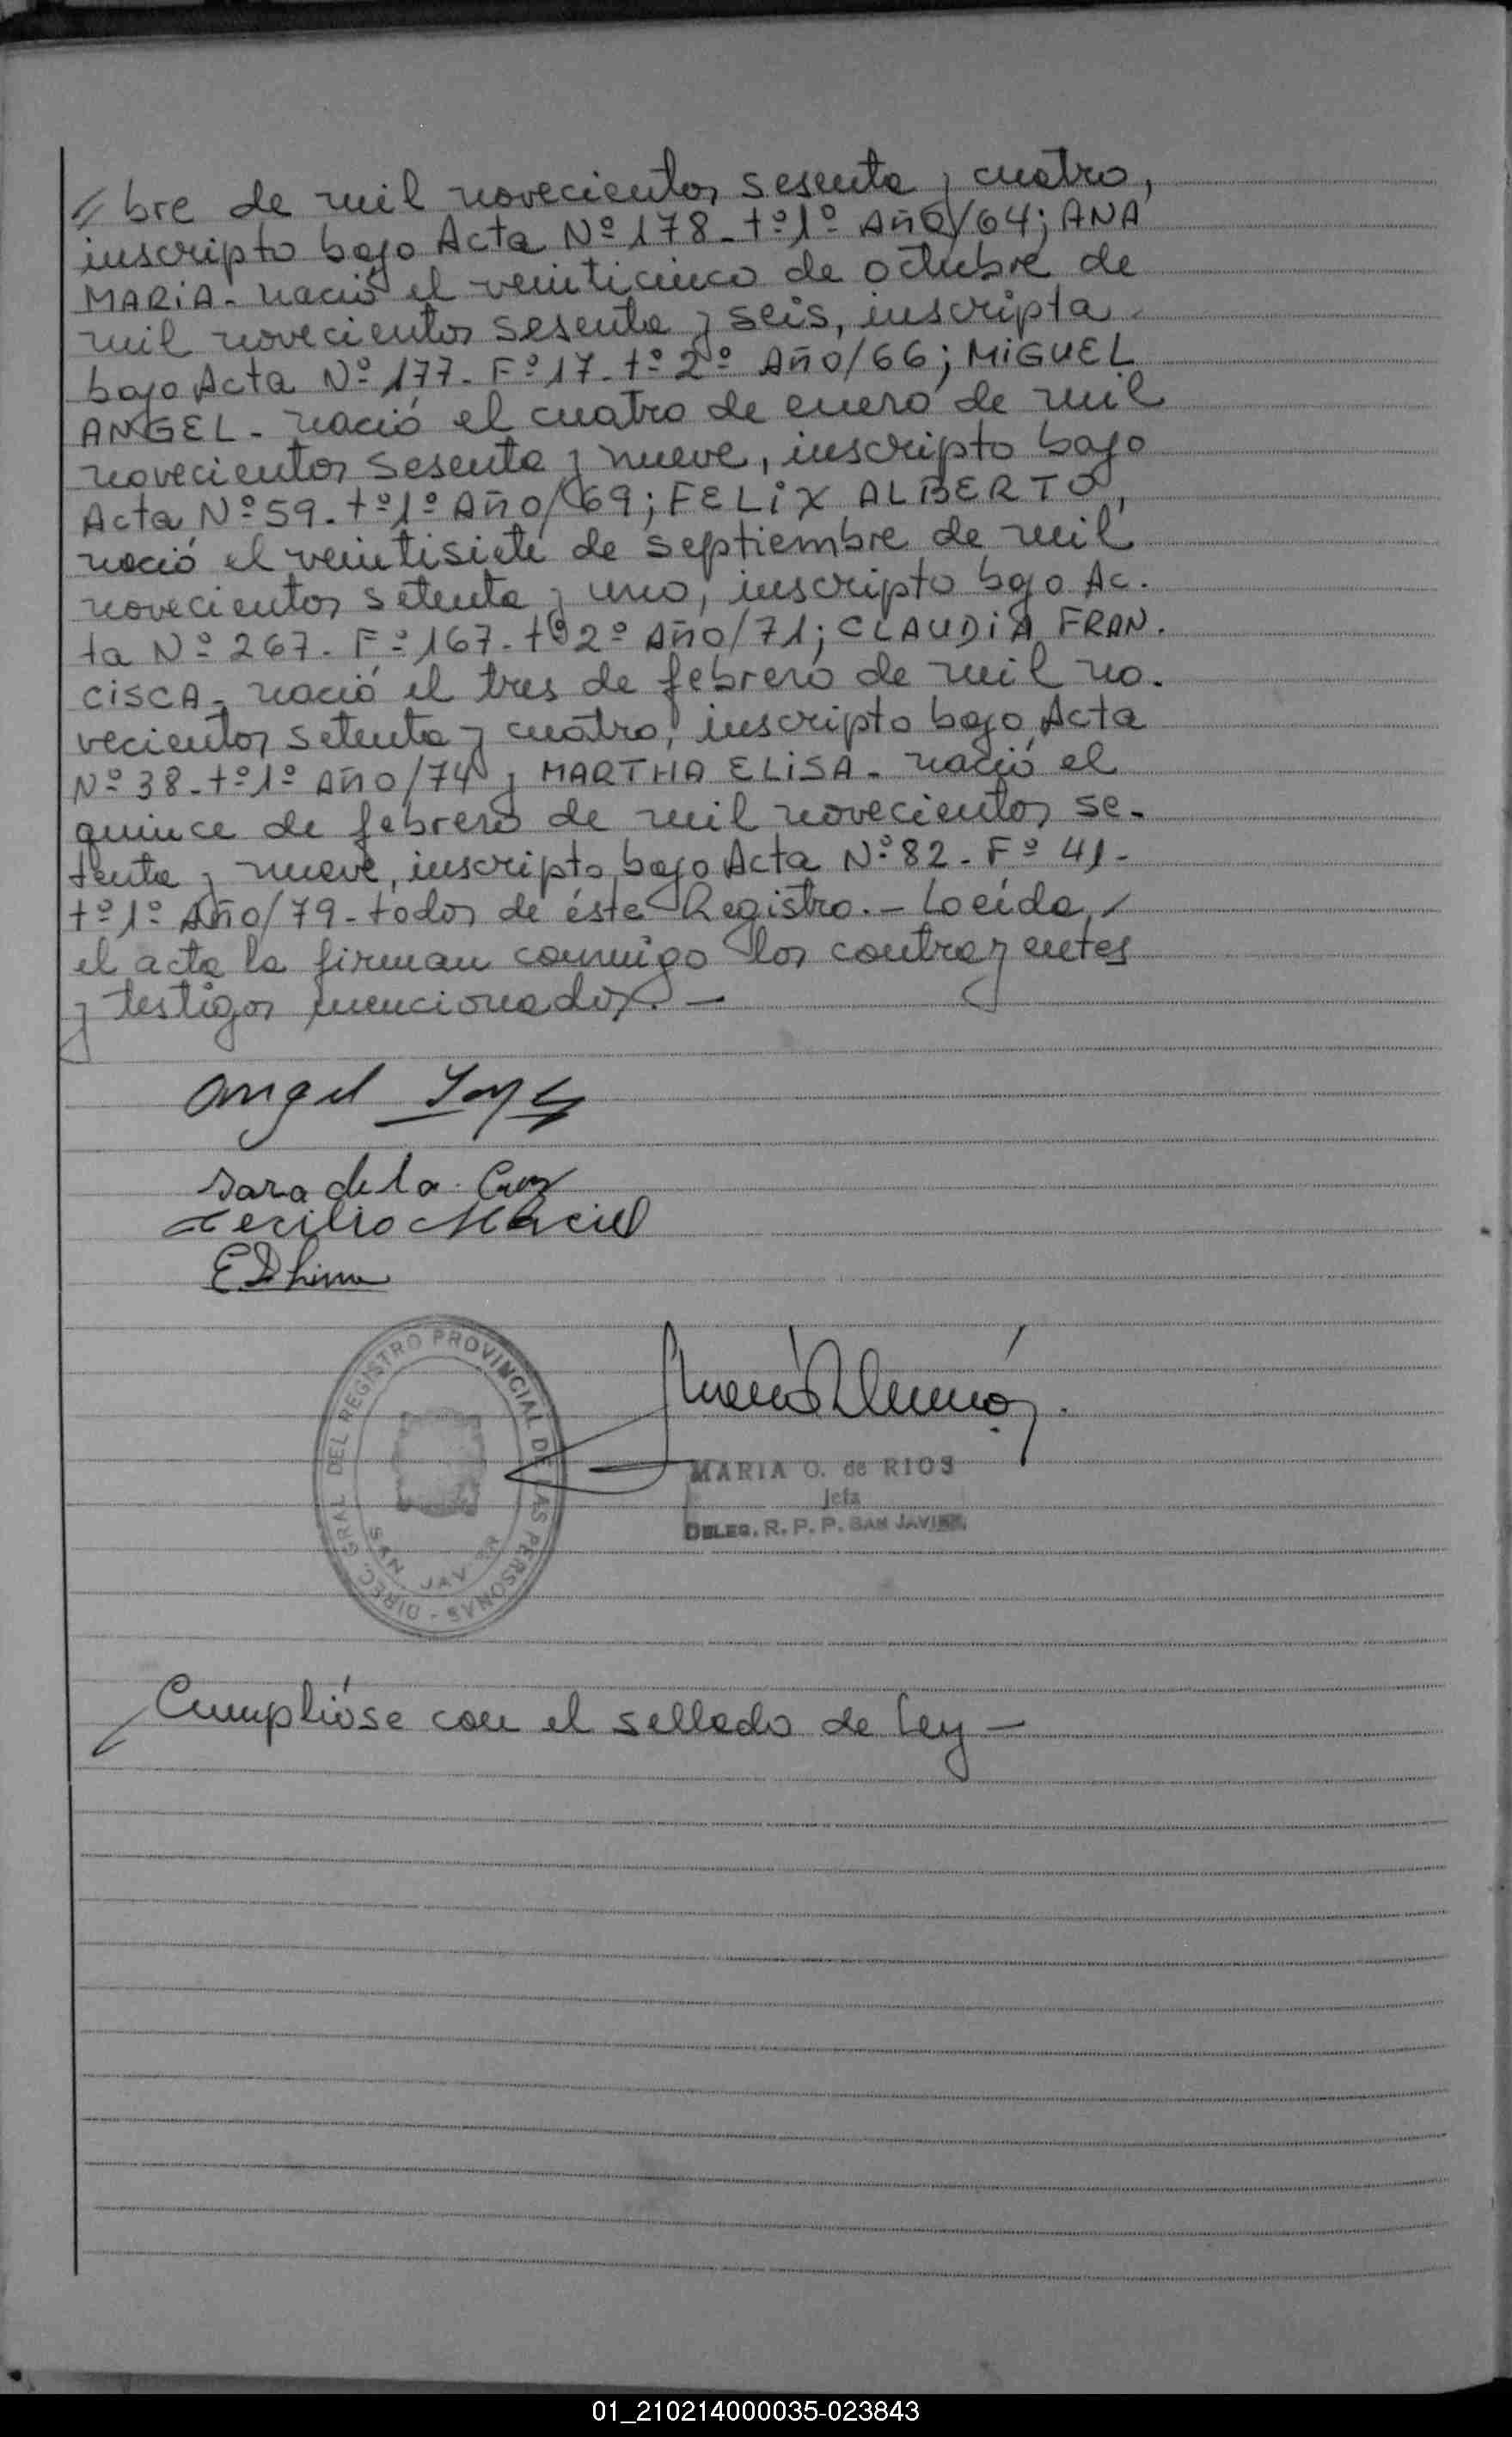 // bre de mil novecientos sesenta y cuatro,
inscripto bajo Acta Nº 178 - tº 1º Año/64; ANA
MARIA - nació el veinticinco de octubre de
mil novecientos sesenta y seis, inscripta
bajo Acta Nº 177 - Fº 17 - tº 2º Año/66; MIGUEL
ANGEL - nació el cuatro de enero de mil
novecientos sesenta y nueve, inscripto bajo
Acta Nº 59 - tº 1º Año/69; FELIX ALBERTO,
nació el veintisiete de septiembre de mil
novecientos setenta y uno, inscripto bajo Ac-
ta Nº 267 - Fº 167 - tº 2º Año/71; CLAUDIA FRAN-
CISCA - nació el tres de febrero de mil no-
vecientos setenta y cuatro, inscripto bajo Acta
Nº 38 - tº 1º Año/74 y MARTHA ELISA - nació el
quince de febrero de mil novecientos se-
tenta y nueve, inscripto bajo Acta Nº 82 - Fº 41 -
tº 1º Año/79 - todos de éste Registro. - Leída,
el acta la firman conmigo los contrayentes
y testigos mencionados. -
angel
Sara de la Cruz
Cecilio Maciel
DEL REGISTRO PROVINCIAL DE LAS PERSONAS - DIREC. GRAL
SAN JAVIER
MARIA O. de RIOS
Jefa
DELEG. R. P. P. SAN JAVIER
Cumplióse con el sellado de Ley -
01_210214000035-023843